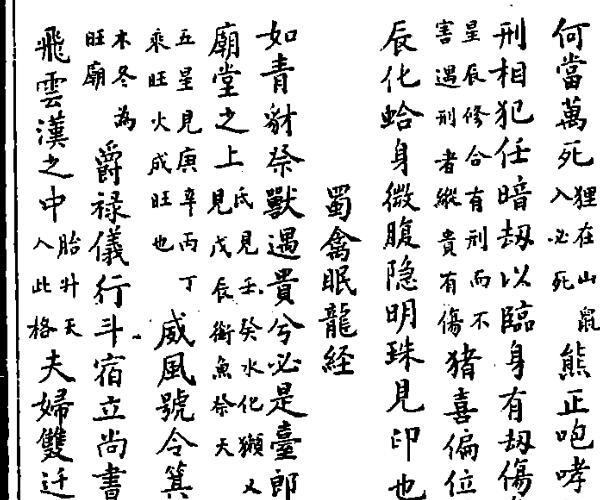 何當萬死狸在山鼠入必死熊正咆哮
刑相犯任暗刼以臨身有刼傷
星辰修合有刑而不害遇刑者縱貴有傷猪喜偏位
辰化蛤身微腹隐明珠見印也
蜀禽眠龍経
如青豺祭獸遇貴兮必是臺郎
廟堂之上氐見壬癸水化獺又見戊辰銜魚祭天
五星見庚辛丙丁乘旺火成旺也威風號令箕
木冬為旺廟爵禄儀行斗宿立尚書
飛雲漢之中胎升天入此格夫婦雙迁